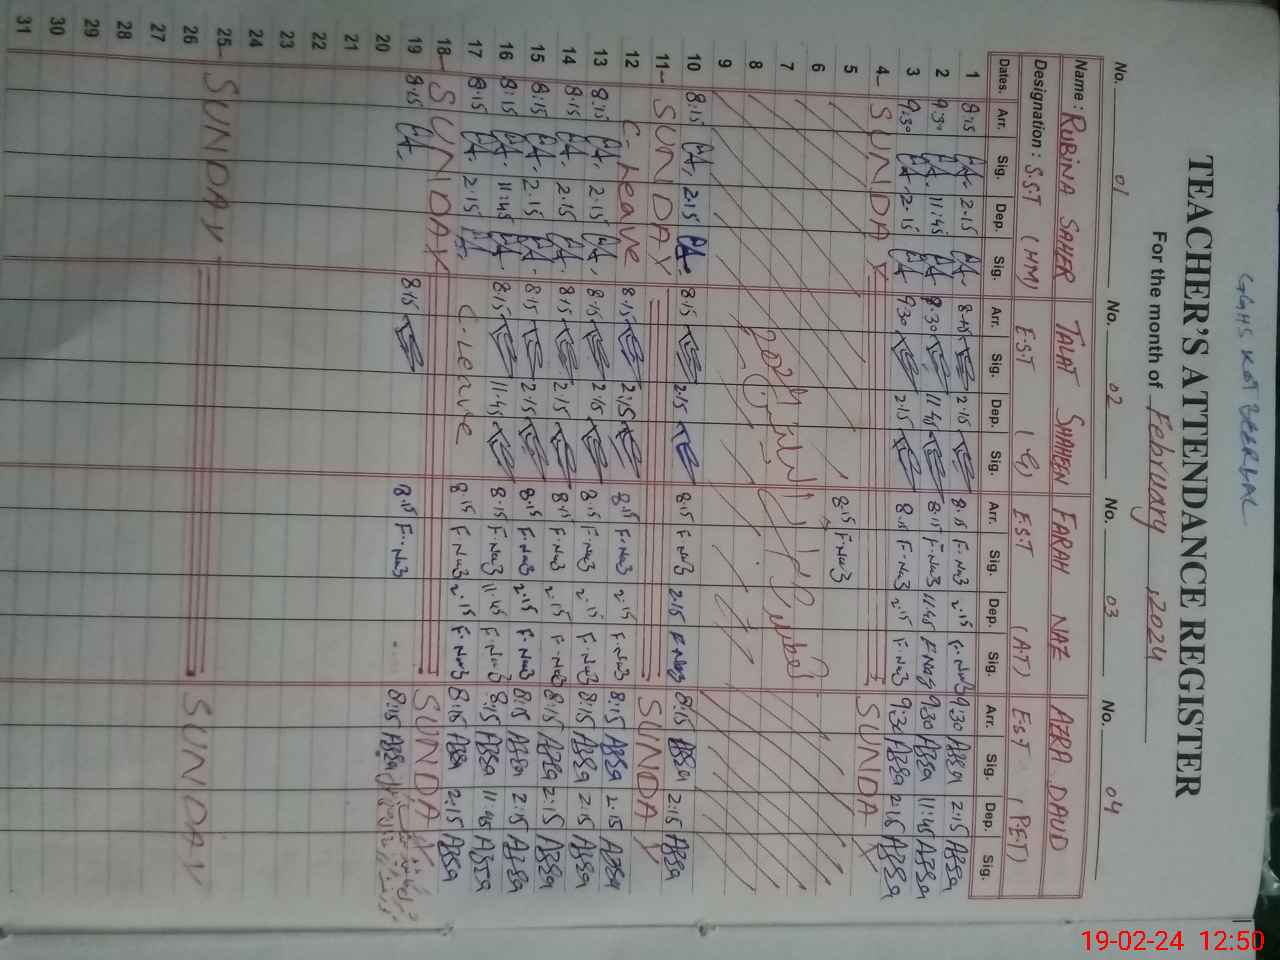 GGHS KOT BEERBAL
TEACHER'S ATTENDANCE REGISTER
For the month of February ,2024
No. 01 No. 02 No. 03 No. 04
Name : RUBINA SAHER TALAT SHAHEEN FARAH NAZ AZRA DAUD
Designation : S.S.T (HM) E.S.T (G) E.S.T (A.T) E.S.T (P.E.T)
Dates. Arr. Sig. Dep. Sig. Arr. Sig. Dep. Sig. Arr. Sig. Dep. Sig. Arr. Sig. Dep. Sig.
1 8:15 2.15 8.15 2.15 8.15 F.Naz 2.15 F.Naz 9.30 Azra 2.15 Azra
2 9.30 11:45 8.30 11.45 8.15 F.Naz 11.45 F.Naz 9.30 Azra 11.45 Azra
3 9:30 2.15 9.30 2.15 8.15 F.Naz 2.15 F.Naz 9.30 Azra 2.15 Azra
4 SUNDAY SUNDAY
5 8.15 F.Naz
6
7
8
9
10 8:15 2.15 8.15 2.15 8.15 F.Naz 2.15 F.Naz 8.15 Azra 2.15 Azra
11 SUNDAY SUNDAY
12 C-Leave 8.15 2.15 8.15 F.Naz 2.15 F.Naz 8:15 Azra 2.15 Azra
13 8:15 2.15 8.15 2.15 8.15 F.Naz 2.15 F.Naz 8:15 Azra 2.15 Azra
14 8.15 2.15 8.15 2.15 8.15 F.Naz 2.15 F.Naz 8:15 Azra 2:15 Azra
15 8:15 2.15 8.15 2.15 8.15 F.Naz 2.15 F.Naz 8:15 Azra 2:15 Azra
16 8:15 11:45 8.15 11.45 8.15 F.Naz 11.45 F.Naz 8:15 Azra 11:45 Azra
17 8.15 2.15 C-Leave 8.15 F.Naz 2.15 F.Naz 8:15 Azra 2:15 Azra
18 SUNDAY SUNDAY
19 8.15 8.15 8.15 F.Naz 8:15 Azra
20
21
22
23
24
25 SUNDAY SUNDAY
26
27
28
29
30
31
19-02-24 12:50